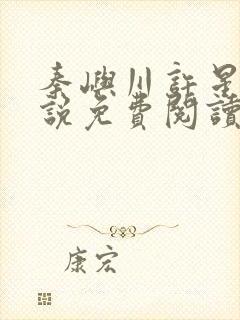 秦嶼川許是
說免費閱讀
康宏